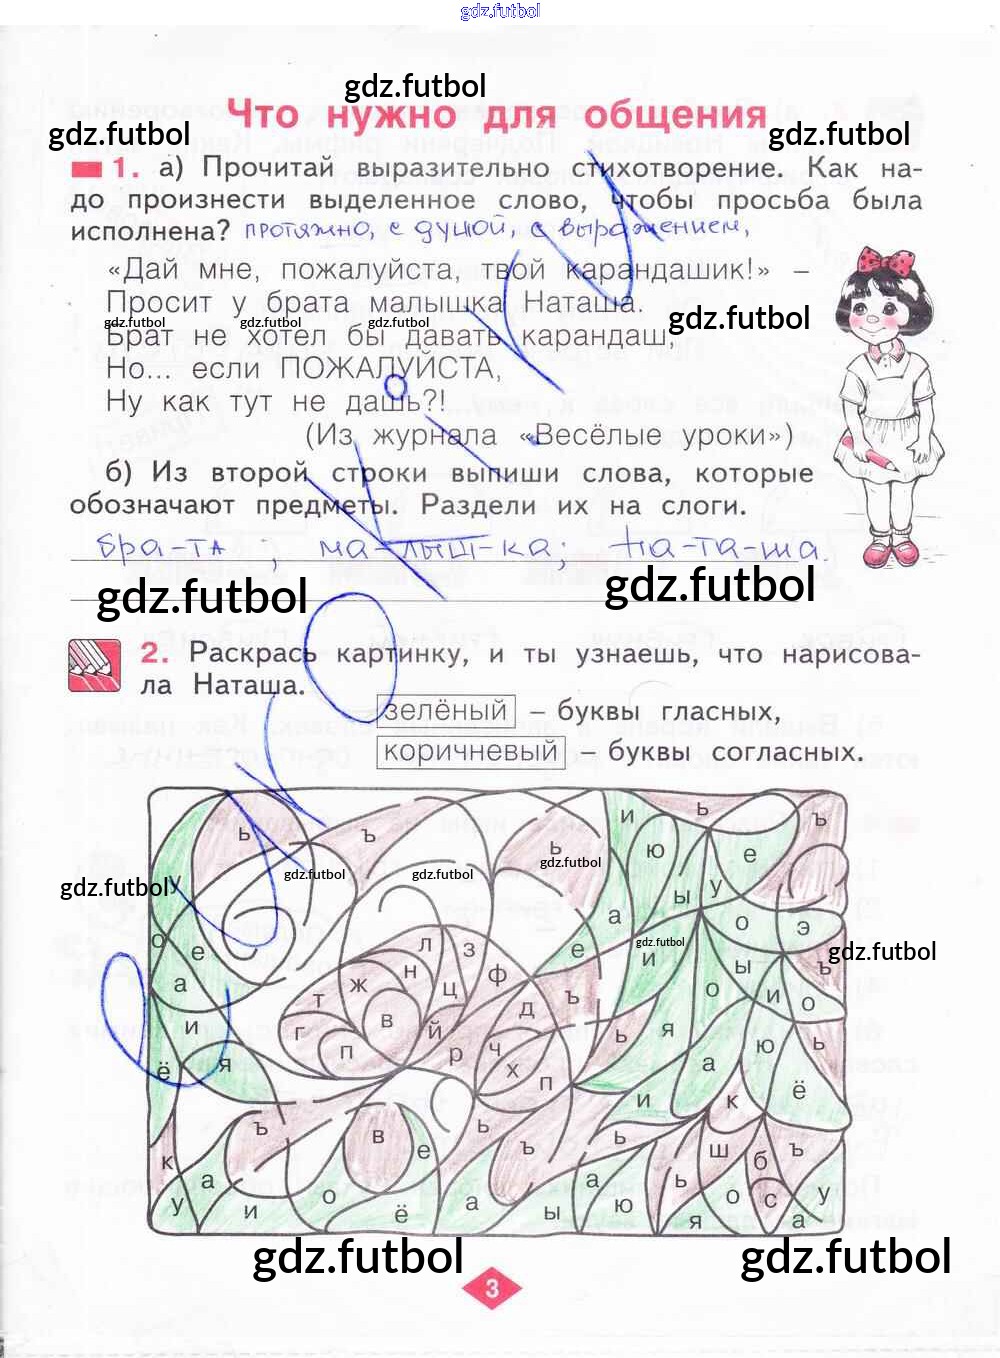 gdz.futbol
gdz.futbol
Что нужно для общения
gdz.futbol
gdz.futbol
1. а) Прочитай выразительно стихотворение. Как на-
до произнести выделенное слово, чтобы просьба была
исполнена? протяжно, с душой, с выражением,
«Дай мне, пожалуйста, твой карандашик!» –
Просит у брата малышка Наташа.
gdz.futbol gdz.futbol gdz.futbol gdz.futbol
Брат не хотел бы давать карандаш,
Но... если ПОЖАЛУЙСТА,
Ну как тут не дашь?!
(Из журнала «Весёлые уроки»)
б) Из второй строки выпиши слова, которые
обозначают предметы. Раздели их на слоги.
бра-та ; ма-лыш-ка; На-та-ша.
gdz.futbol gdz.futbol
2. Раскрась картинку, и ты узнаешь, что нарисова-
ла Наташа.
зелёный – буквы гласных,
коричневый – буквы согласных.
ь ъ ь и ь ъ
ю е
gdz.futbol gdz.futbol gdz.futbol gdz.futbol
у ы у
а о э
о е л з е gdz.futbol и ы ъ gdz.futbol
а ж н ц ф о и о
т в д ъ
и г й ъ я ь
п р ч а ю
ё я х п и к ё
ъ в ь ь
к е ъ ш б ъ
у а и о ё а ы а ю ь я о с а у
gdz.futbol gdz.futbol
3